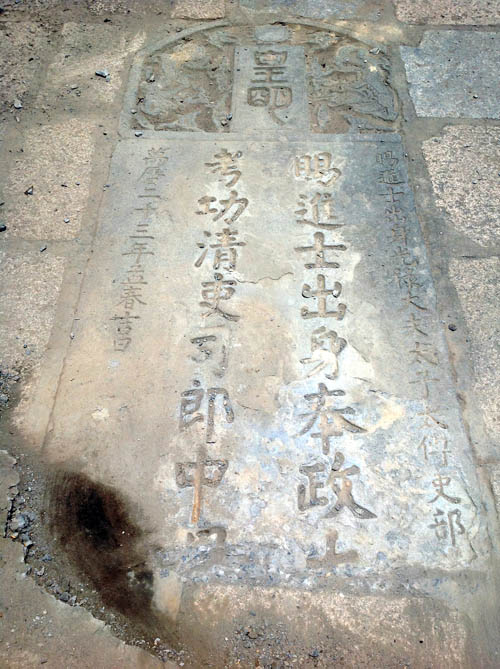 皇明
賜進士第光祿大夫太子太傅吏部
賜進士出身奉政大
考功清吏司郎中
萬曆二十三年春吉